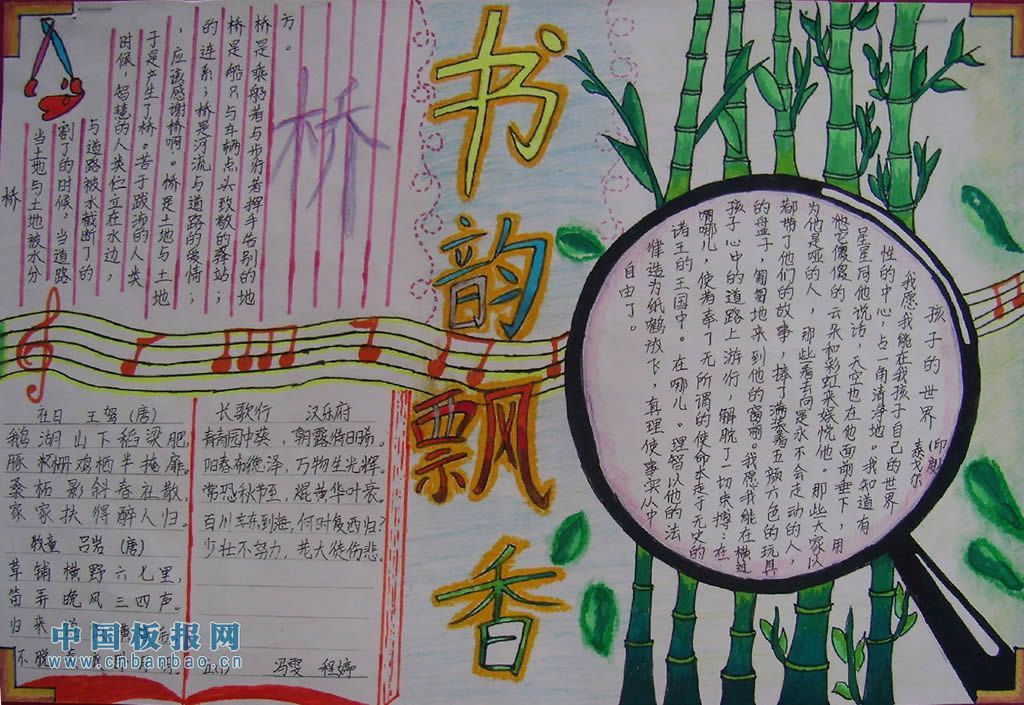 书韵飘香
桥
桥
当土地与土地被水分
割了的时候，当道路
与道路被水截断了的
时候，智慧的人类伫立在水边，
于是产生了桥。苦于跋涉的人类
，应该感谢桥啊。桥是土地与土地
的连系；桥是河流与道路的爱情；
桥是船只与车辆点头致敬的驿站；
桥是乘船者与步行者挥手告别的地
方。
社日 王驾（唐）
鹅湖山下稻粱肥，
豚栅鸡栖半掩扉。
桑柘影斜春社散，
家家扶得醉人归。
牧童 吕岩（唐）
草铺横野六七里，
笛弄晚风三四声。
归来
不脱
长歌行 汉乐府
青青园中葵，朝露待日晞。
阳春布德泽，万物生光辉。
常恐秋节至，焜黄华叶衰。
百川东到海，何时复西归？
少壮不努力，老大徒伤悲
冯雯 程婷
孩子的世界
（印度）泰戈尔
我愿我能在我孩子自己的世界
的中心，占一角清净地。我知道有
星星同他说话，天空也在他面前垂下，用
他它傻傻的云朵和彩虹来娱悦他。那些大家以
为他是哑的人，那些看去向是永不会走动的人，
都带了他们的故事，捧了满装着五颜六色的玩具
的盘子，匍匐地来到他的窗前。我愿我能在横过
孩子心中的道路上游行，解脱了一切束缚：在
哪儿，使者奉了无所谓的使命奔走于无史的
诸王的王国中。在哪儿。理智以他的法
律造为纸鹤放下，真理使事实从中
自由了。
中国板报网
www.cnbanbao.cn